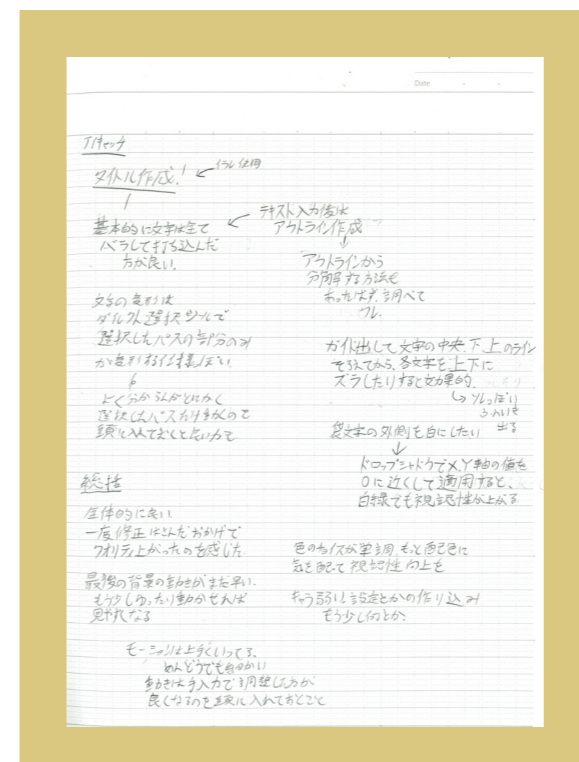 Date
アイキャッチ
タイトル作成！
イラレ使用
基本的に文字は全て
バラして打ち込んだ
方が良い。
テキスト入力後は
アウトライン作成
アウトラインから
分解する方法も
あったはず、調べて
文字の変形は
ダイレクト選択ツールで
選択したパスの部分のみ
が変形する仕様っぽい
よく分からんがとにかく
選択したパスだけ動くので
頭に入れておくと良いかも
ガイド出して文字の中央、下、上のライン
そろえてから、各文字を上下に
ズラしたりすると効果的。
ふんいき
出る
袋文字の外側を白にしたい
ドロップシャドウでX,Y軸の値を
0に近くして適用すると、
白縁でも視認性が上がる
総括
全体的に良い
一度修正はさんだおかげで
クオリティ上がったのを感じた
最後の背景の動きがまだ早い。
もう少しゆったり動かせれば
見やすくなる
色のチョイスが単調、もっと配色に
気を配って視認性向上を
キャラ弱い、設定とかの作り込み
もう少し何とか。
モーションは上手くいってる、
めんどうでも細かい
動きは手入力で調整した方が
良くなるのを頭に入れておくこと